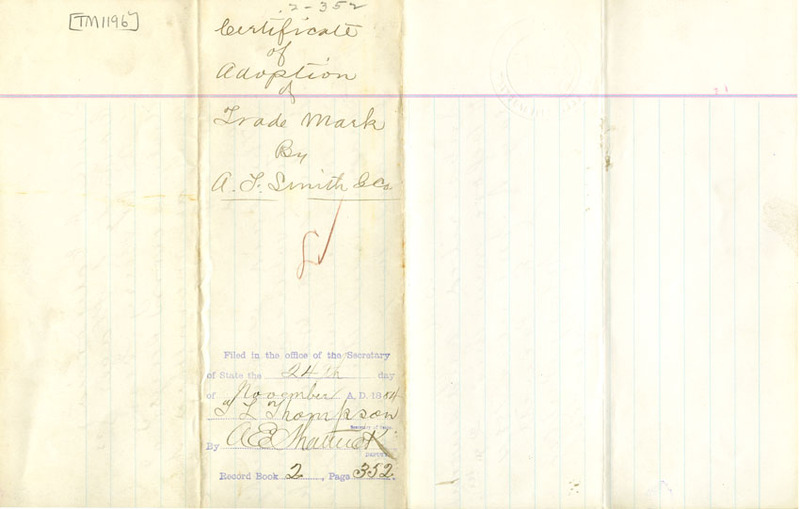 [TM1196]
2-352
Certificate
of
Adoption
of
Trade Mark
By
A. F. Smith & Co
Filed in the office of the Secretary
of State the 24th day
of November A.D. 1884
T L Thompson
Secretary of State.
By A E Shattuck
DEPUTY
Record Book 2, Page 352.